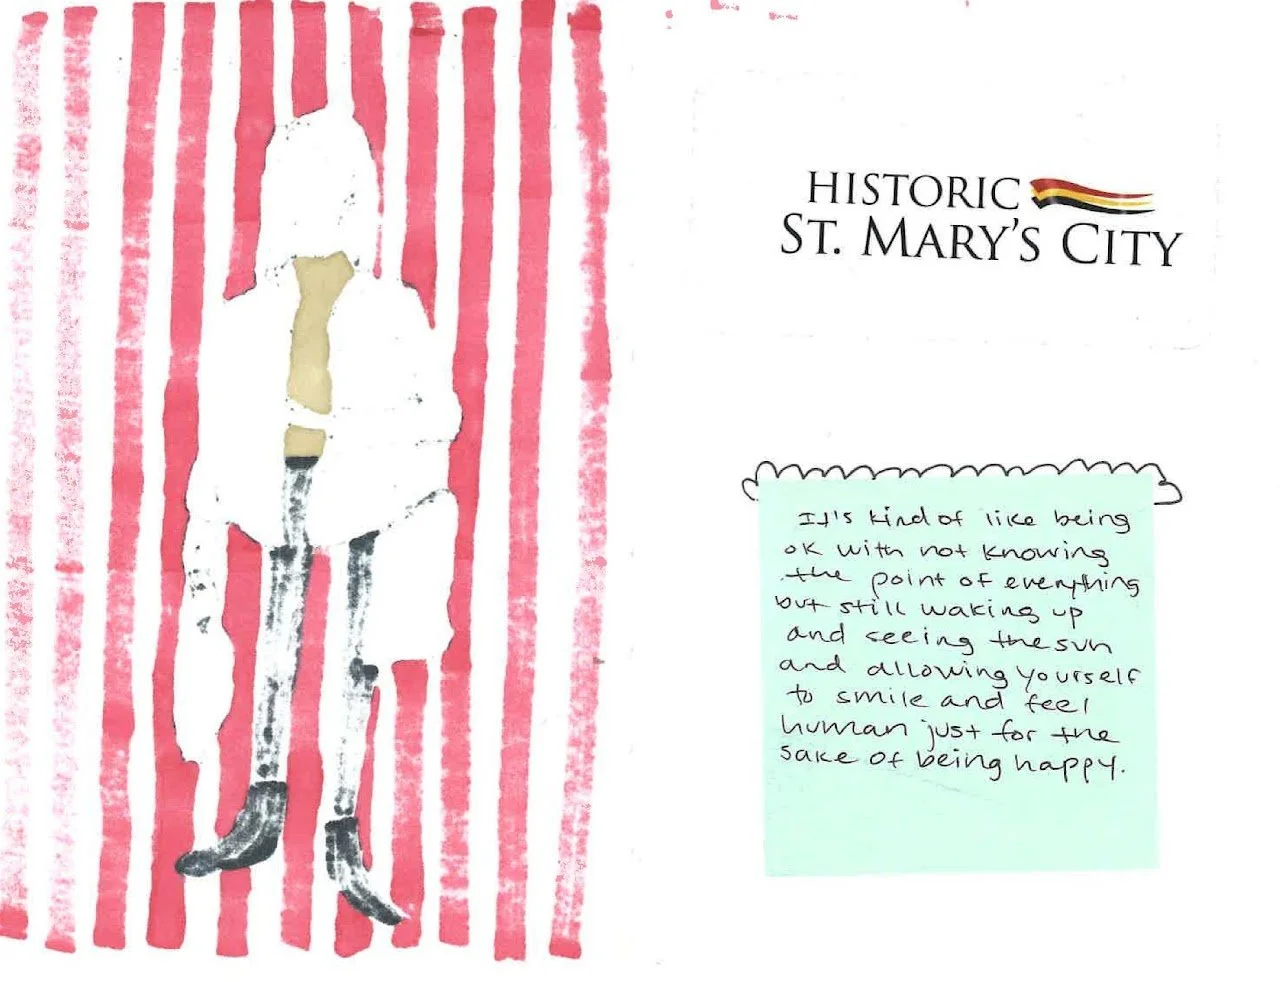 HISTORIC
ST. MARY'S CITY
It's kind of like being
ok with not knowing
the point of everything
but still waking up
and seeing the sun
and allowing yourself
to smile and feel
human just for the
sake of being happy.